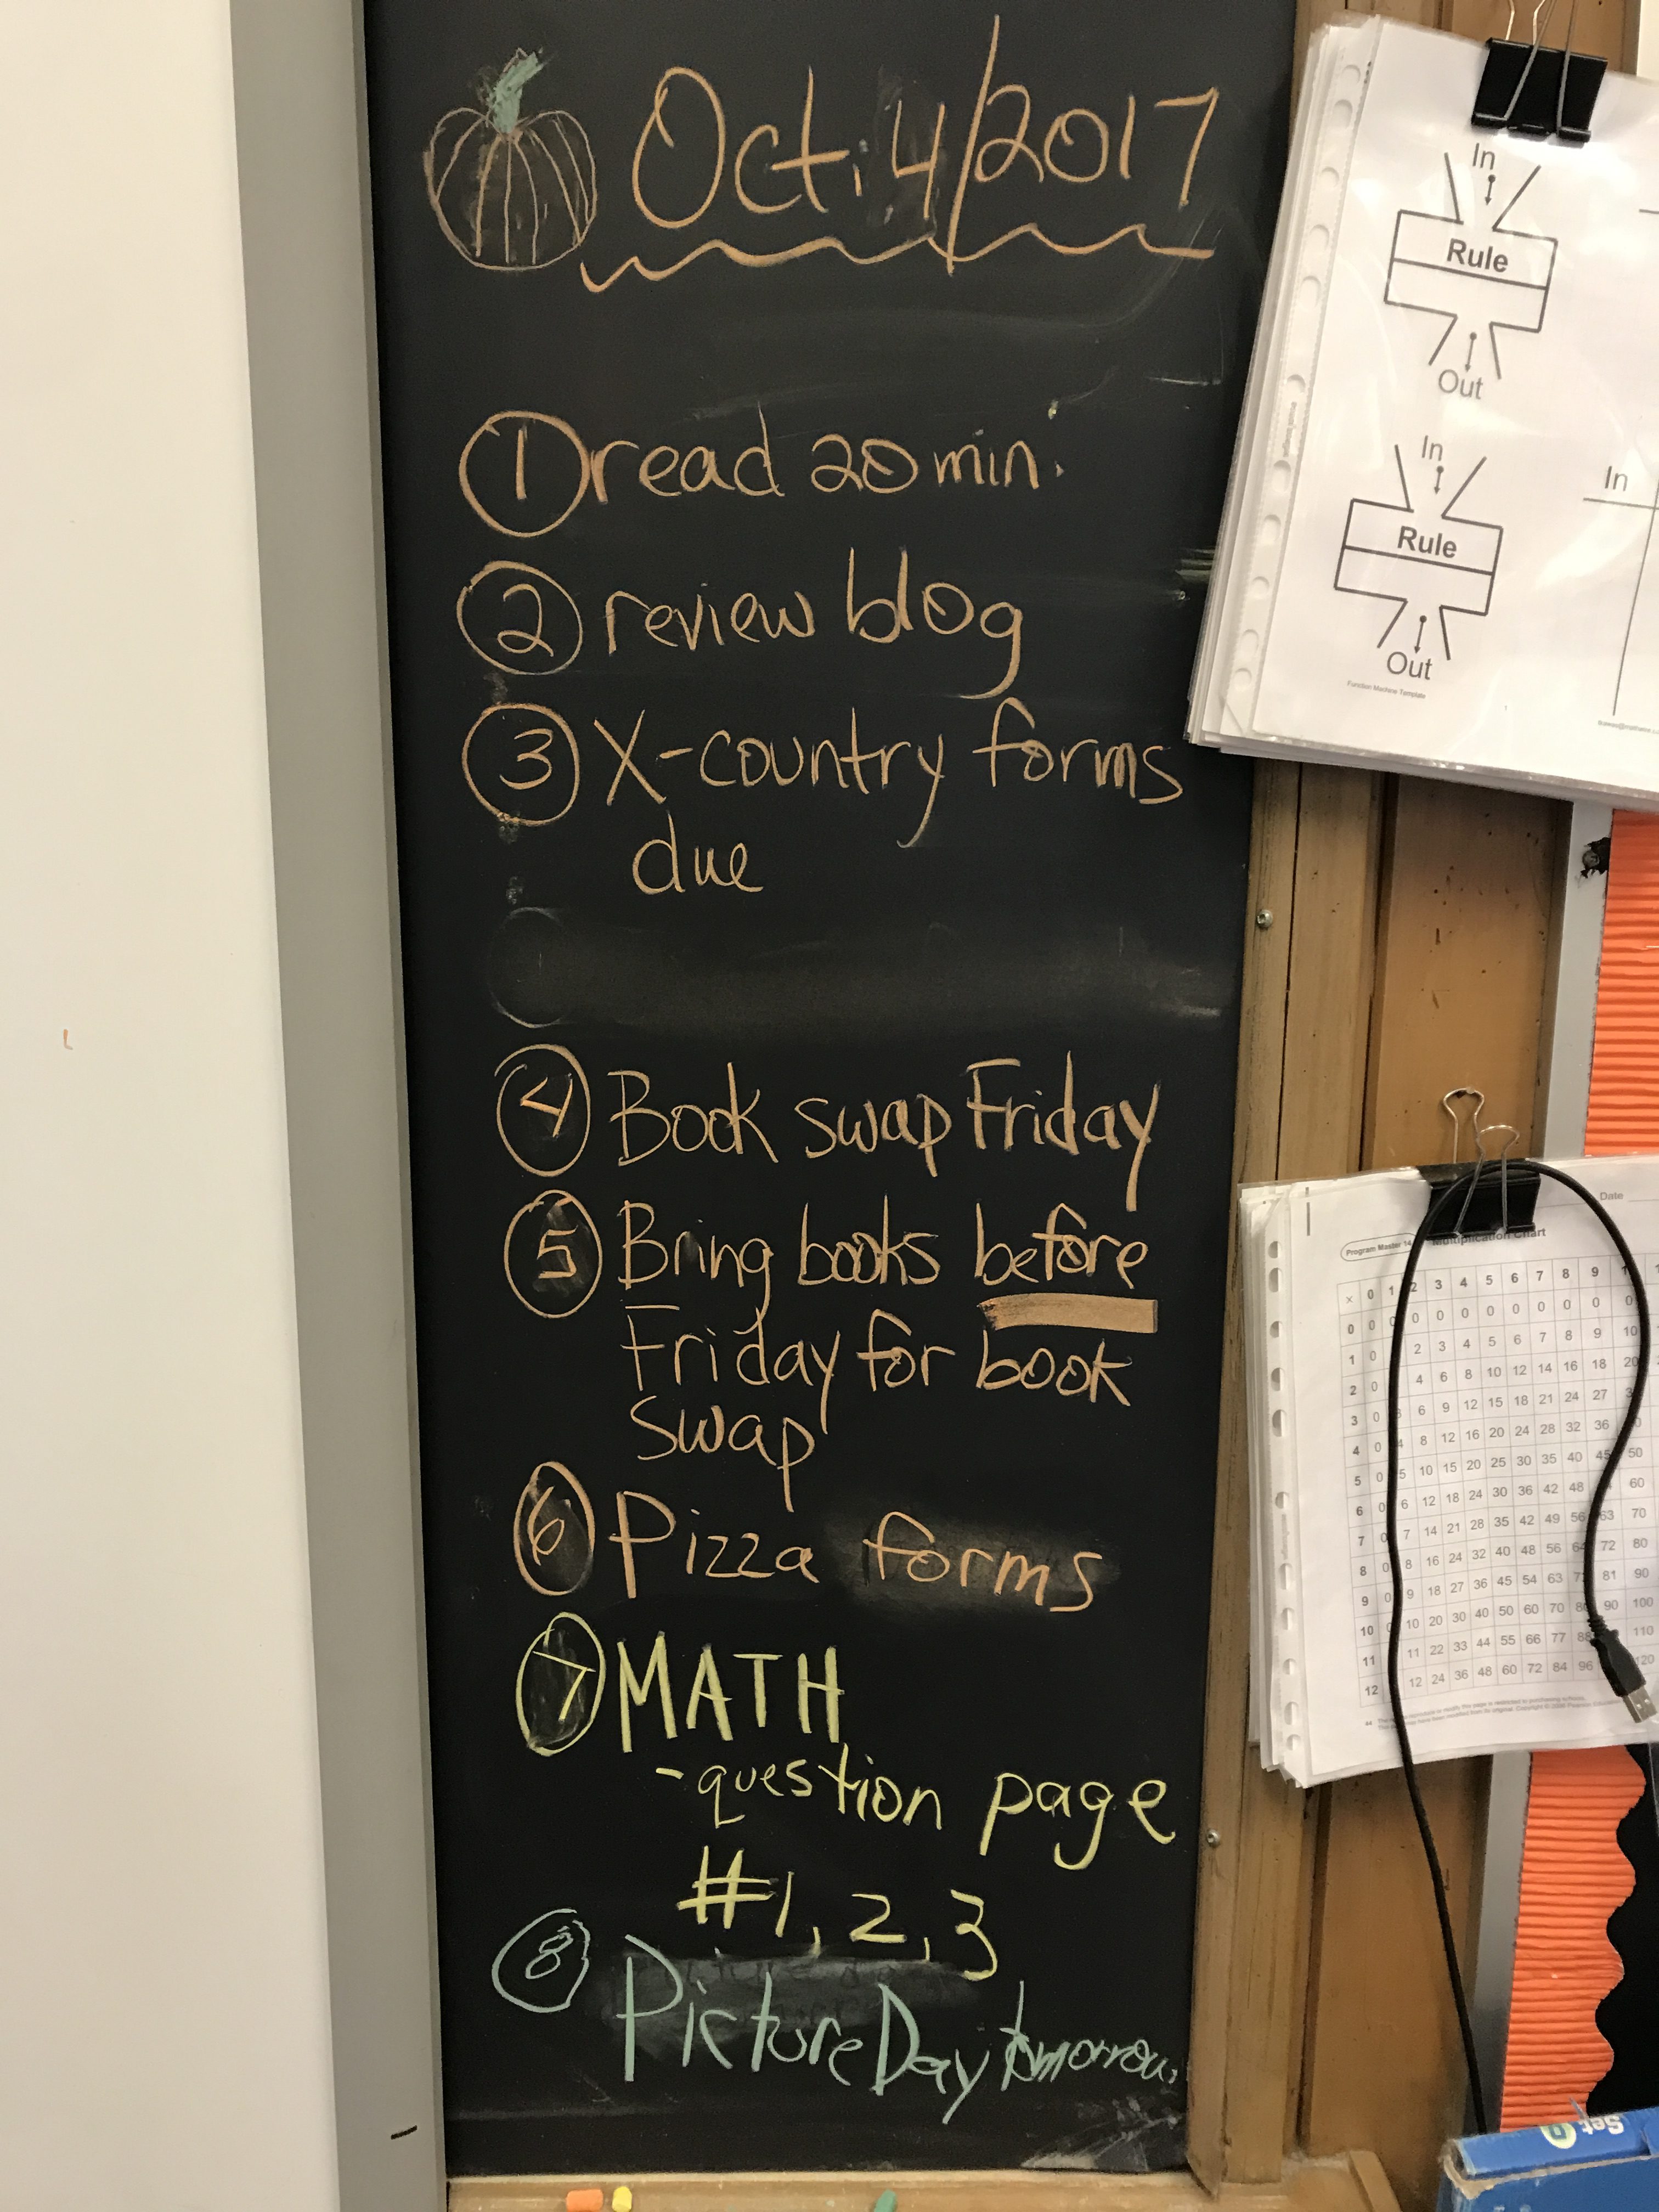 Oct. 4/2017
1 read 20 min.
2 review blog
3 X-country forms
due
4 Book swap Friday
5 Bring books before
Friday for book
swap
6 Pizza forms
7 MATH
-question page
#1, 2, 3
8 Picture Day tomorrow
In
Rule
Out
In
Rule
Out
Function Machine Template
In
Date
Program Master 14
Multiplication Chart
× 0 1 2 3 4 5 6 7 8 9
0 0 0 0 0 0 0 0 0 0 0
1 0 2 3 4 5 6 7 8 9 10
2 0 4 6 8 10 12 14 16 18 20
3 0 6 9 12 15 18 21 24 27
4 0 4 8 12 16 20 24 28 32 36
5 0 5 10 15 20 25 30 35 40 45 50
6 0 6 12 18 24 30 36 42 48 60
7 0 7 14 21 28 35 42 49 56 63 70
8 0 8 16 24 32 40 48 56 64 72 80
9 0 9 18 27 36 45 54 63 81 90
10 10 20 30 40 50 60 70 90 100
11 11 22 33 44 55 66 77 88 110
12 12 24 36 48 60 72 84 96 120
Set